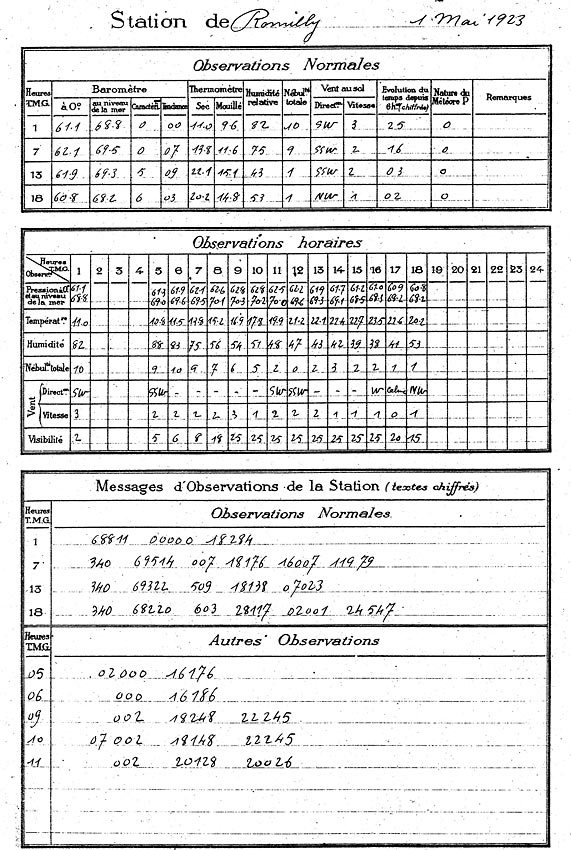 Station de Romilly 1 Mai 1923
Observations Normales
Heures T.M.G. Baromètre Thermomètre Humidité relative Nébul.té totale Vent au sol Evolution du temps depuis 6h. (chiffrée) Nature du Météore P Remarques
à 0° au niveau de la mer Caractéri. Tendance Sec Mouillé Direct.on Vitesse
1 61.1 68.8 0 00 11.0 9.6 82 10 SW 3 25 0
7 62.1 69.5 0 07 13.8 11.6 75 9 SSW 2 16 0
13 61.9 69.3 5 09 22.1 15.1 43 1 SSW 2 03 0
18 60.8 68.2 6 03 20.2 14.8 53 1 NW 1 02 0
Observations horaires
Heures T.M.G. Observ.ns 1 2 3 4 5 6 7 8 9 10 11 12 13 14 15 16 17 18 19 20 21 22 23 24
Pression à 0° 61.1 61.3 61.9 62.1 62.6 62.8 62.8 62.5 62.2 61.9 61.7 61.2 61.0 60.9 60.8
et au niveau de la mer 68.8 69.0 69.6 69.5 70.1 70.3 70.2 70.0 69.6 69.3 69.1 68.5 68.3 68.2 68.2
Températ.re 11.0 10.8 11.5 13.8 15.2 16.9 17.8 19.9 21.2 22.1 22.4 22.7 23.5 22.6 20.2
Humidité 82 88 83 75 56 54 51 48 47 43 42 39 38 41 53
Nébul.té totale 10 9 10 9 7 6 5 2 0 2 3 2 2 1 1
Vent Direct.on SW SSW - - - - - SW SSW - - - W Calme NW
Vitesse 3 2 2 2 2 3 1 2 2 2 1 1 1 0 1
Visibilité 2 5 6 8 18 25 25 25 25 25 25 25 25 20 15
Messages d'Observations de la Station (textes chiffrés)
Heures T.M.G. Observations Normales
1 68811 00000 18284
7 340 69514 007 18176 16007 11979
13 340 69322 509 18138 07023
18 340 68220 603 28117 02001 24547
Heures T.M.G. Autres Observations
05 02000 16176
06 000 16186
09 002 18248 22245
10 07002 18148 22245
11 002 20128 20026